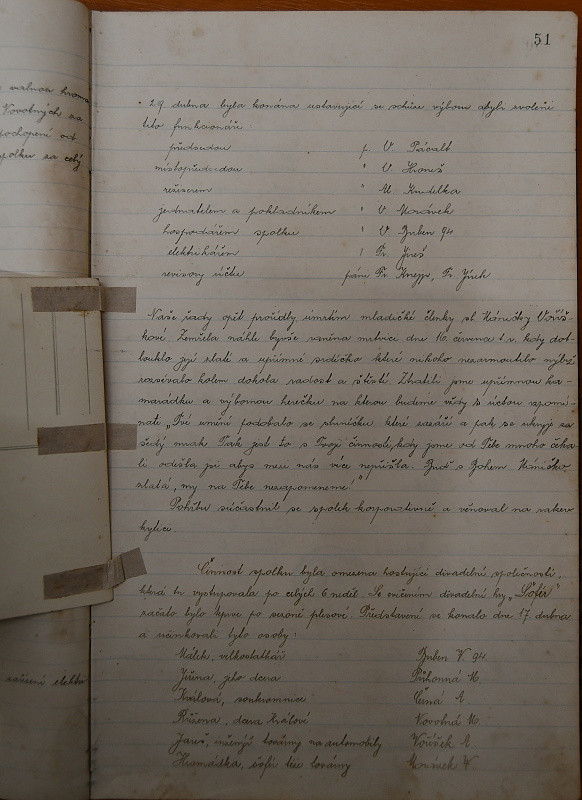 51
valnou hrom
Novotných za
pochopení od
spolku za celý
29 dubna byla konána ustavující se schůze výboru abyli zvoleni
tito funkcionáři
předsedou p. V. Pácalt
místopředsedou " V. Hroneš
režiserem " Al. Kudelka
jednatelem a pokladníkem " V Morávek
hospodářem spolku " V Buben 94
elektrikářem " Fr. Jreš
revisory účtů páni Fr. Knepp, Fr. Jirsh
Naše řady opět prořídly úmrtím mladičké členky sl. Máničky Voříš-
kové Zemřela náhle byvše raněna mrtvicí dne 16. července t. r. kdy dot-
louklo její zlaté a upřímné srdíčko které nikoho nezarmoutilo nýbrž
rozsévalo kolem dokola radost a štěstí Ztratili jsme upřímnou ka-
marádku a výbornou herečku na kterou budeme vždy s úctou vzpomí-
nati „Tvé umění podobalo se sluníčku které zazáří a pak se ukryje za
šedý mrak Tak jest to s Tvojí činností, kdy jsme od Tebe mnoho čeka-
li odešla jsi abys mezi nás více nepřišla. Buď s Bohem Máničko
zlatá, my na Tebe nezapomeneme!"
Pohřbu súčastnil se spolek korporativně a věnoval na rakev
kytici.
Činnost spolku byla omezena hostující divadelní společností,
která tu vystupovala po celých 6 neděl. Se cvičením divadelní hry „Šofér"
začato bylo teprve po sezoně plesové. Představení se konalo dne 17. dubna
a účinkovali tyto osoby:
Málek, velkostatkář Buben V. 94.
Jiřina, jeho dcera Průhonná M.
Králová, soukromnice Černá A
Růžena, dcera Králové Novotná M.
Jareš, inženýr továrny na automobily Voříšek A
Hromádka, šofér téže továrny Morávek V.
zařízení elektr